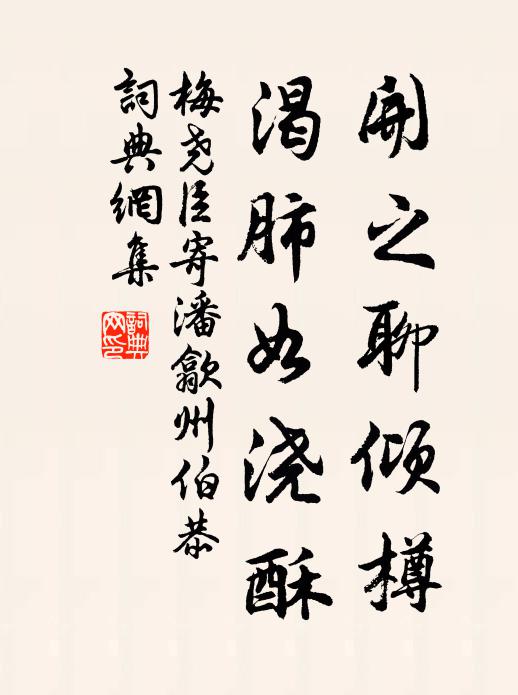 開之聊傾樽
渴肺如澆酥
梅尧臣寄潘歙州伯恭
詞典網集
詞典網印